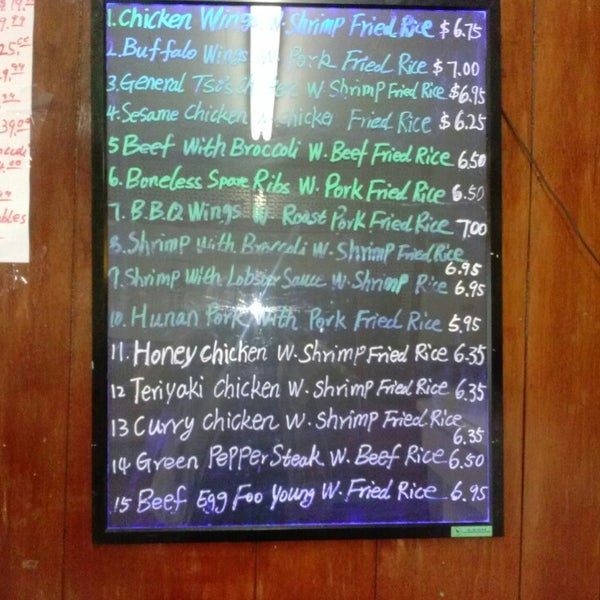 1. Chicken Wings W. Shrimp Fried Rice $6.75
2. Buffalo Wings W. Pork Fried Rice $7.00
3. General Tso's W. Shrimp Fried Rice $6.95
4. Sesame Chicken Fried Rice $6.25
5 Beef With Broccoli W. Beef Fried Rice 6.50
6. Boneless Spare Ribs W. Pork Fried Rice 6.50
7. B.B.Q Wings W. Roast Pork Fried Rice 7.00
8. Shrimp With Broccoli W. Shrimp Fried Rice
6.95
9. Shrimp With Lobster Sauce W. Shrimp Rice 6.95
10. Hunan Pork With Pork Fried Rice 5.95
11. Honey chicken W. Shrimp Fried Rice 6.35
12 Teriyaki Chicken W. Shrimp Fried Rice 6.35
13 Curry Chicken W. Shrimp Fried Rice
6.35
14 Green Pepper Steak W. Beef Rice 6.50
15 Beef Egg Foo Young W. Fried Rice 6.95